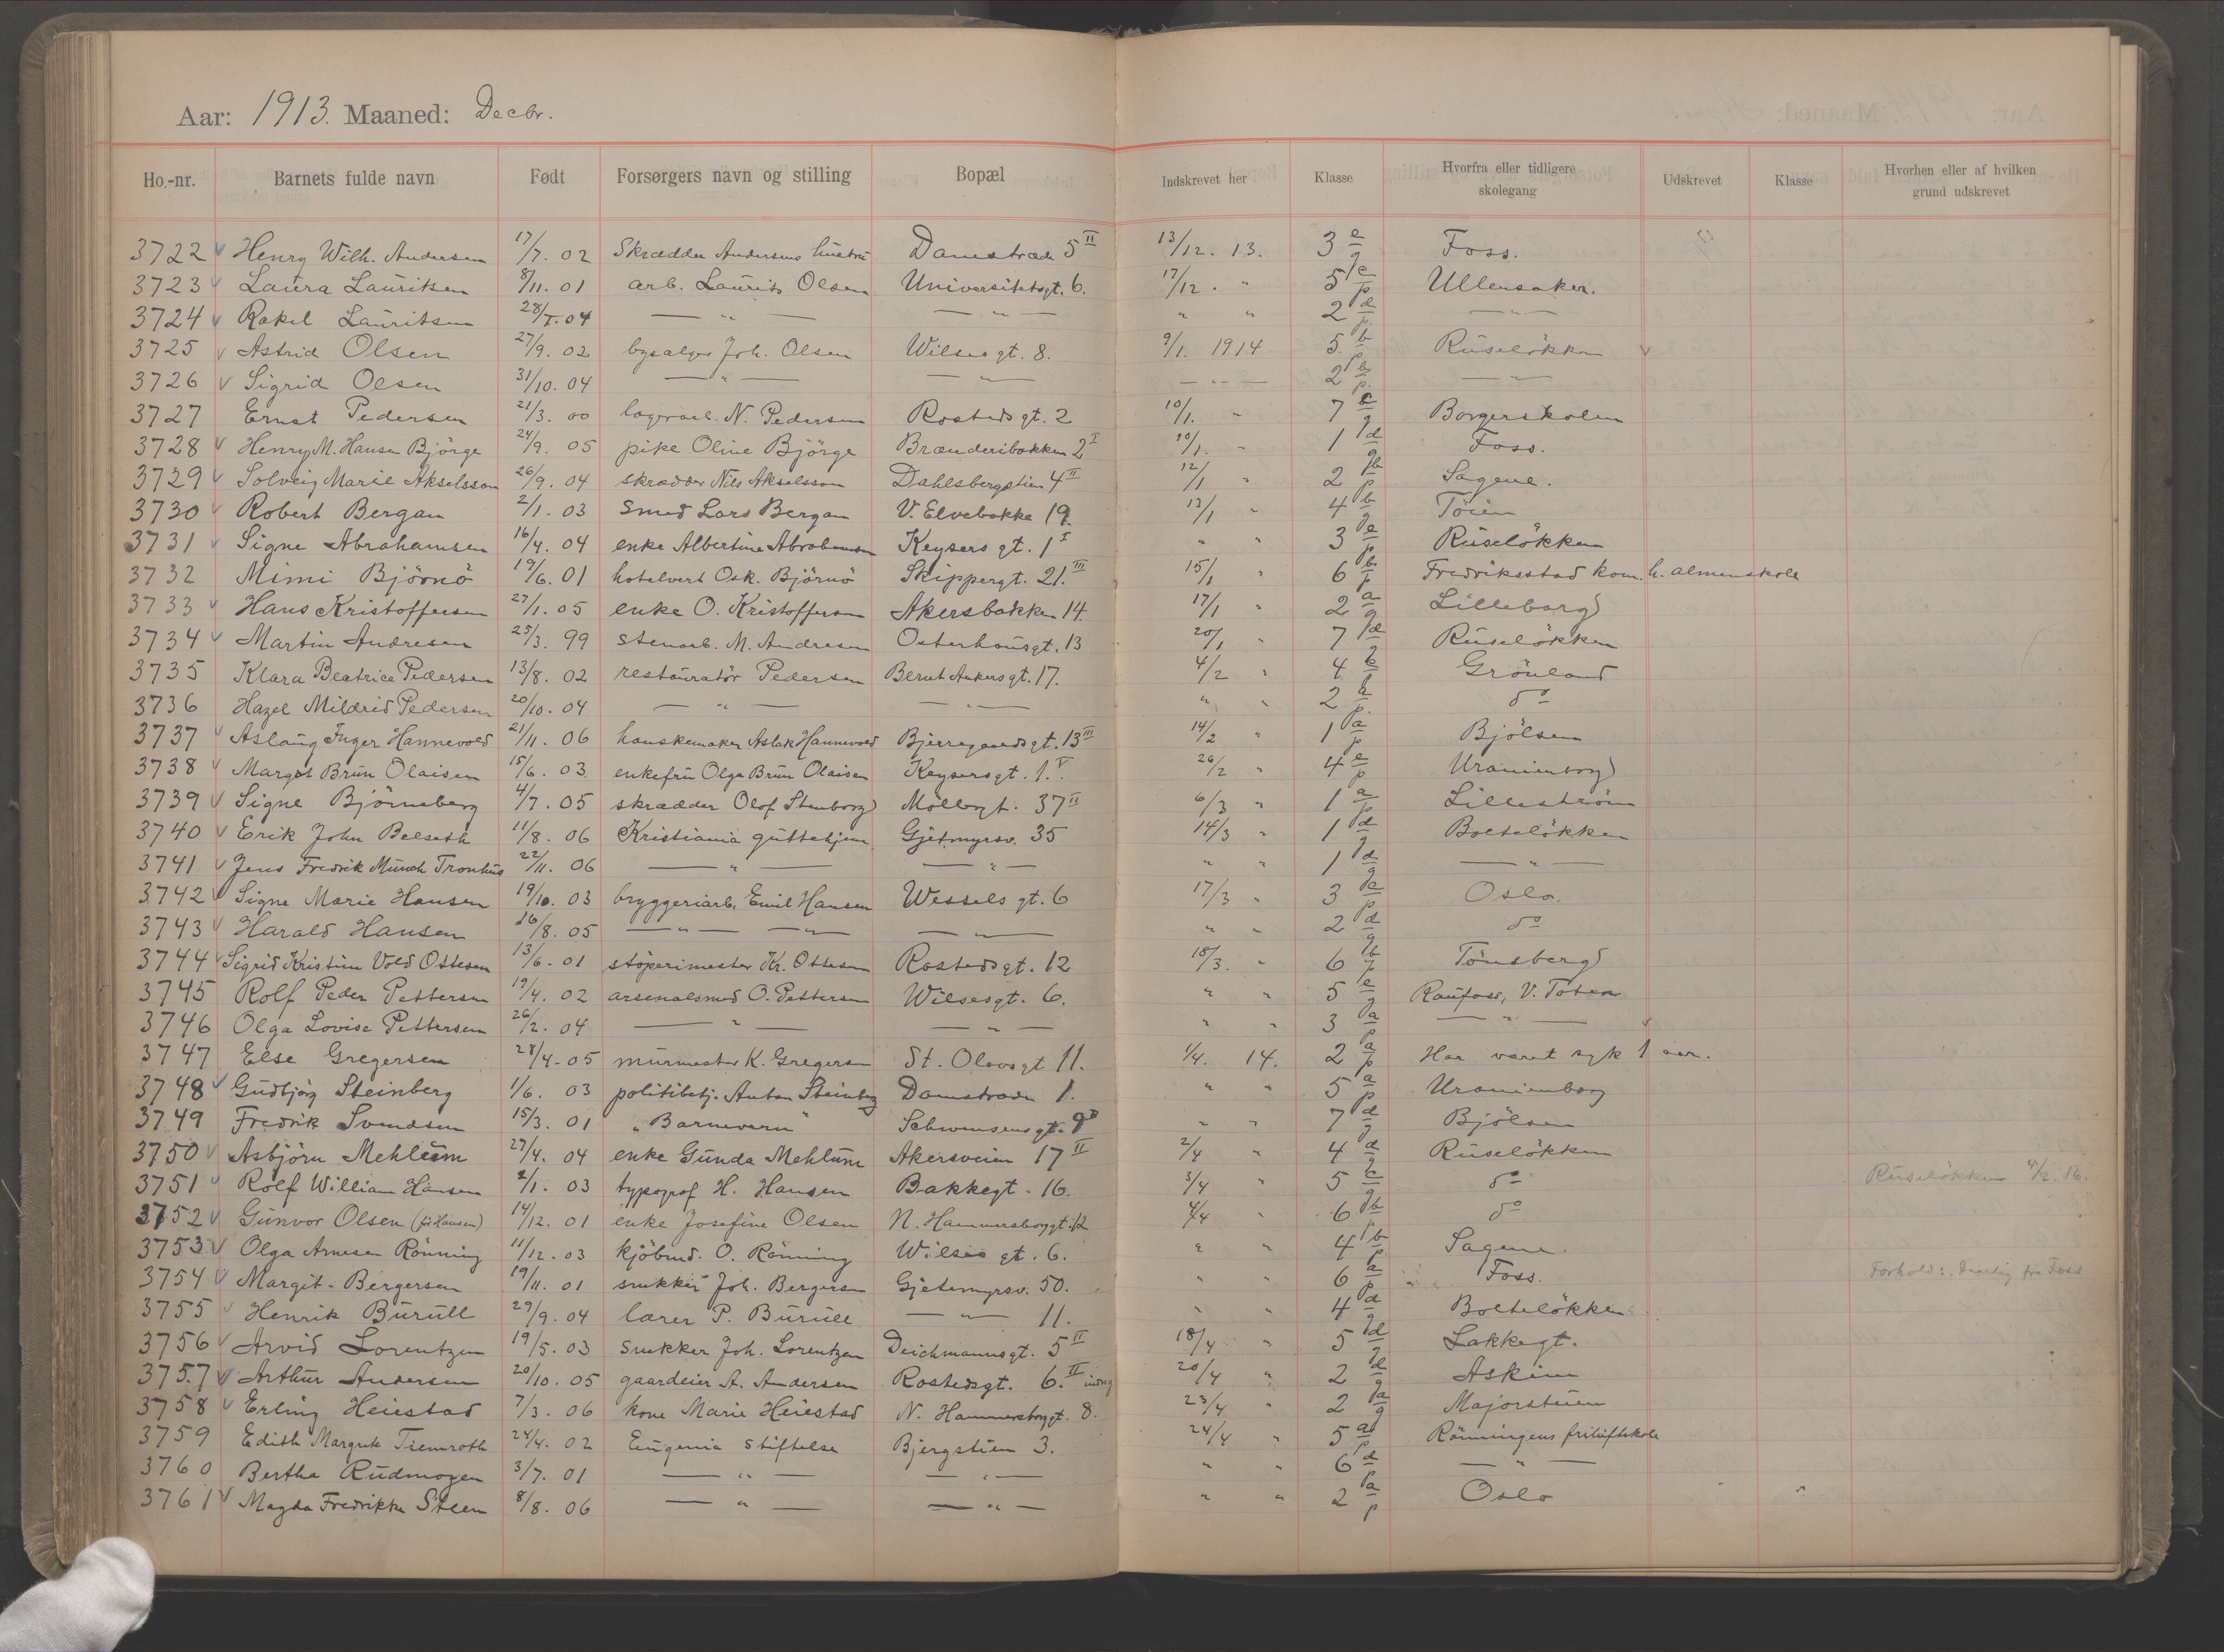 Aar: 1913. Maaned: Decbr.
Ho.-nr. Barnets fulde navn Født Forsørgers navn og stilling Bopæl Indskrevet her Klasse Hvorfra eller tidligere skolegang Udskrevet Klasse Hvorhen eller af hvilken grund udskrevet
3722 v Henry Wilh. Andersen 17/7. 02 Skrædder Andersens hustru Damstræde 5 II 13/12. 13. 3 e/g Foss.
3723 v Laura Lauritsen 8/11. 01 arb. Laurits Olsen Universitetsgt. 6. 17/12. " 5 e/p Ullensaker.
3724 v Rakel Lauritsen 28/I. 04 — " — — " — " " 2 d/p. — " —
3725 v Astrid Olsen 27/9. 02 bysælger Joh. Olsen Wilses gt. 8. 9/1. 1914 5 b/p. Ruseløkken v
3726 v Sigrid Olsen 31/10. 04 — " — — " — — " — 2 b/p. — " —
3727 Ernst Pedersen 21/3. 00 N. Pedersen Rosteds gt. 2 10/1. " 7 c/g Borgerskolen
3728 v Henry M. Hansen Björge 24/9. 05 pike Oline Björge Brænderibakken 2 I 10/1. " 1 d/g Foss.
3729 v Solveig Marie Akselsson 26/9. 04 skrædder Nils Akselsson Dahlsbergstien 4 II 12/1 " 2 b/p Sagene.
3730 v Robert Bergan 2/1. 03 Smed Lars Bergan V. Elvebakke 19. 13/1 " 4 b/g Töien
3731 v Signe Abrahamsen 16/4. 04 enke Albertine Abrahamsen Keysers gt. 1 I " " 3 e/p Ruselökken
3732 Mimi Björnö 19/6. 01 hotelvert Osk. Björnö Skippergt. 21. III 15/1 " 6 b/p Fredriksstad kom. h. almenskole
3733 v Hans Kristoffersen 27/1. 05 enke O. Kristoffersen Akersbakken 14. 17/1 " 2 a/g Lilleborg
3734 v Martin Andresen 25/3. 99 stenarb. M. Andresen Osterhausgt. 13 20/1 " 7 d/g Ruselökken
3735 Klara Beatrice Pedersen 13/8. 02 restauratör Pedersen Bernt Ankersgt. 17. 4/2 " 4 b/p Grönland
3736 Hazel Mildrid Pedersen 20/10. 04 — " — — " — " " 2 b/p. do
3737 v Aslaug Inger Hannevold 21/11. 06 hanskemaker Aslak Hannevold Bjerregaardsgt. 13 III 14/2 " 1 a/p Bjölsen
3738 v Margot Brun Olaisen 15/6. 03 enkefru Olga Brun Olaisen Keysersgt. 1. V. 26/2 " 4 e/p Uranienborg
3739 v Signe Björneberg 4/7. 05 skrædder Olof Stenborg Möllergt. 37 II 6/3 " 1 a/p Lilleström
3740 v Erik John Belseth 11/8. 06 Kristiania guttehjem Gjetmyrsv. 35 14/3 " 1 d/g Bolteløkken
3741 v Jens Fredrik Munch Tronhus 22/11. 06 — " — — " — " " 1 d/g — " —
3742 v Signe Marie Hansen 19/10. 03 bryggeriarb. Emil Hansen Wessels gt. 6 17/3 " 3 a/p Oslo.
3743 v Harald Hansen 26/8. 05 — " — — " — — " — " " 2 d/g do
3744 v Sigrid Kristine Vold Ottesen 13/6. 01 stöperimester Kr. Ottesen Rostedsgt. 12 18/3. " 6 b/p Tönsberg
3745 Rolf Peder Pettersen 19/4. 02 arsenalsmed O. Pettersen Wilsesgt. 6. " " 5 e/g Raufoss, V. Toten
3746 Olga Lovise Pettersen 26/2. 04 — " — — " — " " 3 a/p — " — v
3747 Else Gregersen 28/4. 05 murmester K. Gregersen St. Olavsgt 11. 1/4. 14. 2 a/p Har været syk 1 aar.
3748 v Gudbjörg Steinberg 1/6. 03 politibetj. Anton Steinberg Damstræde 1. " " 5 a/p Uranienborg
3749 Fredrik Svendsen 15/3. 01 "Barnevern" Schwensensgt. 9 " " 7 d/g Bjölsen
3750 v Asbjörn Mehlum 27/4. 04 enke Gunda Mehlum Akersveien 17 II 2/4 " 4 d/g Ruselökken
3751 v Rolf William Hansen 2/1. 03 typograf H. Hansen Bakkegt. 16. 3/4 " 5 c/g do Ruselökken 4/2. 16.
3752 v Gunvor Olsen (för Hansen) 14/12. 01 enke Josefine Olsen N. Hammersborggt. 12 4/4 " 6 b/p do
3753 v Olga Arnesen Rönning 11/12. 03 kjöbmd. O. Rönning Wilses gt. 6. " " 4 b/p Sagene.
3754 v Margit Bergersen 19/11. 01 snekker Joh. Bergersen Gjetemyrsv. 50. " " 6 a/p Foss. Forhold: Daarlig fra Foss
3755 v Henrik Burull 29/9. 04 lærer P. Burull — " — 11. " " 4 d/g Bolteløkken.
3756 v Arvid Lorentzen 19/5. 03 snekker Joh. Lorentzen Deichmannsgt. 5 II 18/4 " 5 d/g Lakkegt.
3757 v Arthur Andersen 20/10. 05 gaardeier A. Andersen Rostedsgt. 6. II indg 20/4 " 2 d/g Askim
3758 v Erling Heiestad 7/3. 06 kone Marie Heiestad N. Hammersborggt. 8. 23/4 " 2 a/g Majorstuen
3759 Edith Margrete Tiemroth 24/4. 02 Eugenia Stiftelse Bjergstien 3. 24/4 " 5 a/p Rönningens friluftskole
3760 Bertha Rudmogen 3/7. 01 — " — — " — " " 6 d/p — " —
3761 v Magda Fredrikke Steen 8/8. 06 — " — — " — " " 2 a/p Oslo